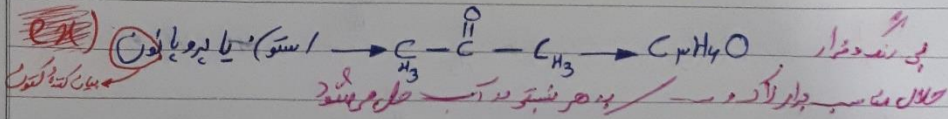 ex) استون یا پروپانون → CH3 - C - CH3 → C3H6O بی رنگ و فرار
O
بیان کننده کتون
حلال مناسب برای لاک و ... / به هر نسبتی در آب حل می‌شود